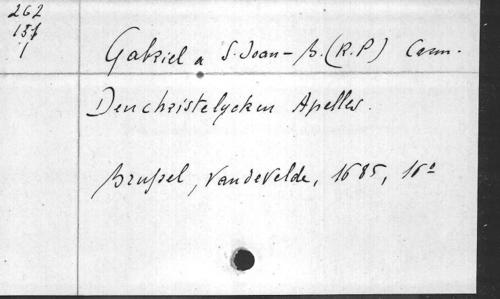 262
157
1
Gabriel a S. Joan-B. (R.P) Carm.
Den christelycken Apelles.
Brussel, Vandevelde, 1685, 16°